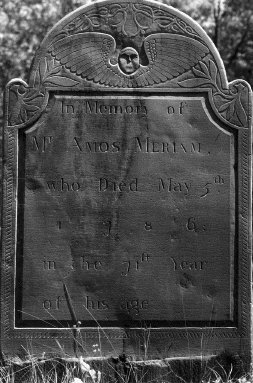 In Memory of
Mr. AMOS MERIAM,
who Died May 5th
1786.
in the 71st Year
of his age